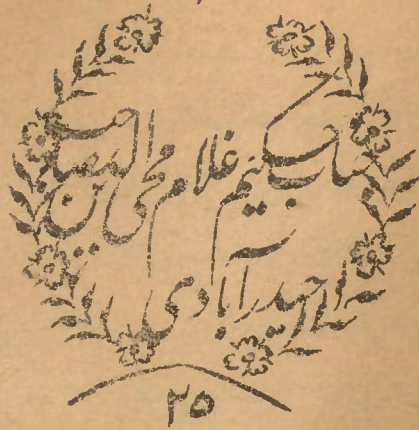 جناب حکیم غلام محی الدین صاحب
حیدرآبادی
۲۵